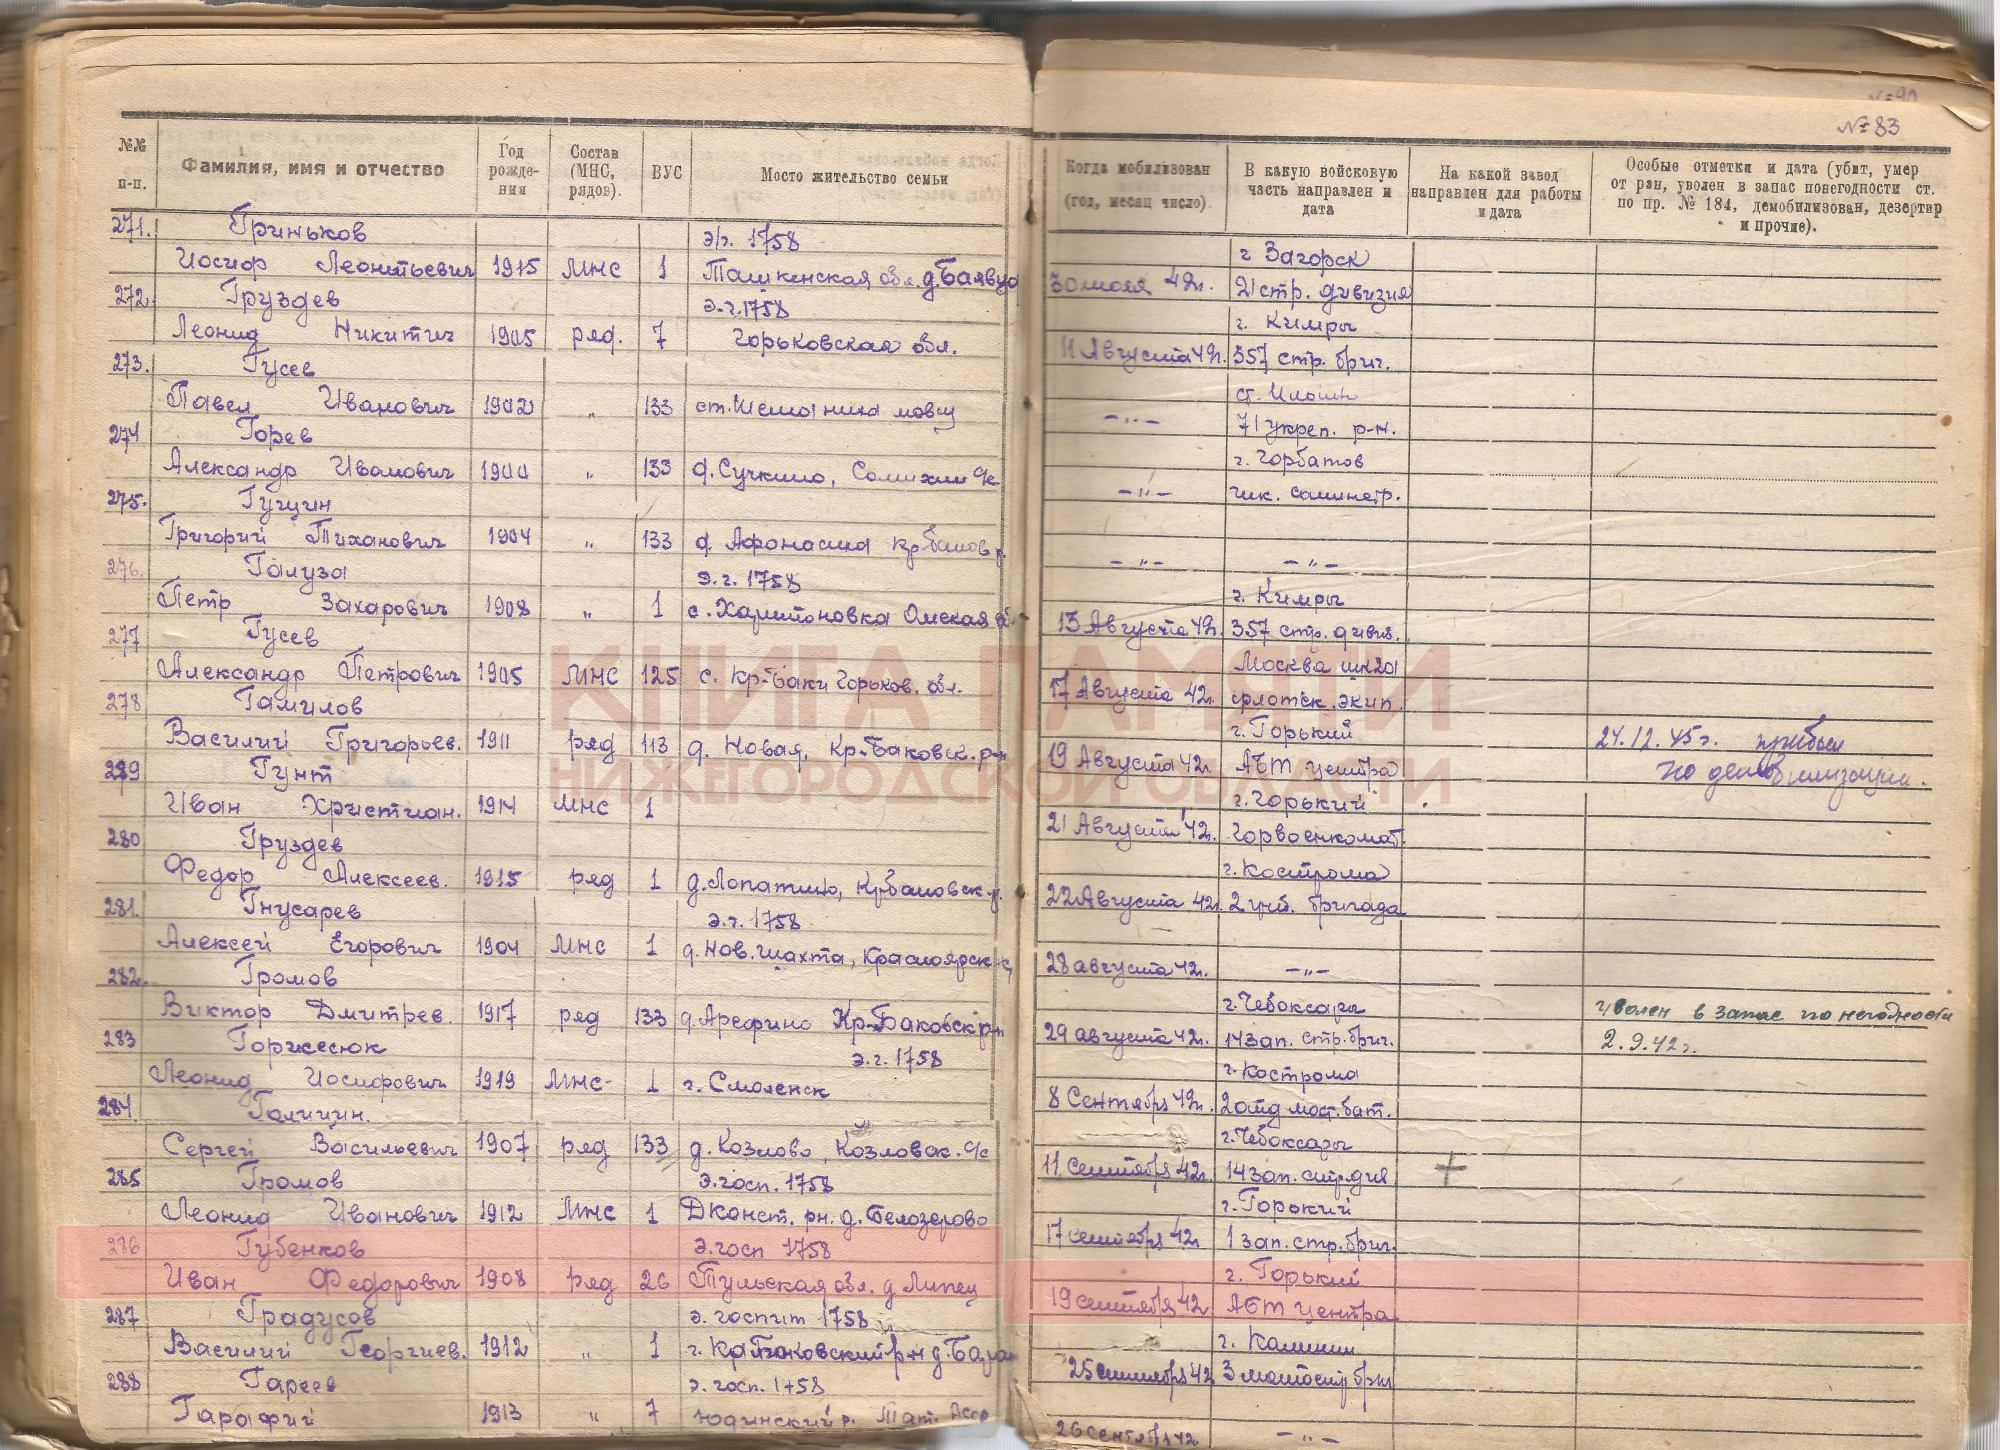 № 90
№ 83
№№ п-п.
Фамилия, имя и отчество
Год рожде-ния
Состав (МНС, рядов).
ВУС
Мосто жительство семьи
Когда мобилизован (год, месяц число).
В какую войсковую часть направлен и дата
На какой завод направлен для работы и дата
Особые отметки и дата (убит, умер от ран, уволен в запас понегодности ст. по пр. № 184, демобилизован, дезертир и прочие).
271. Гриньков э/г. 1758 г Загорск
Иосиф Леонтьевич 1915 МНС 1 обл. д. 42г. 21 стр. дивизия
272. Груздев э.г. 1758 г. Кимры
Леонид Никитич 1905 ряд. 7 Горьковская обл. 11 Августа 42г. 357 стр. бриг.
273. Гусев ст.
Павел Иванович 1902 „ 133 ст. –„– 71 укреп. р-н.
274 Горев г. Горбатов
Александр Иванович 1900 „ 133 д. Сучкино, с/с –„–
275. Гущин
Григорий Тиханович 1904 „ 133 д. –„– –„–
276. Галуза э.г. 1758 г. Кимры
Петр Захарович 1908 „ 1 с. Харитоновка Омская об. 13 Августа 42г. 357 стр. дивиз.
277 Гусев Москва
Александр Петрович 1905 МНС 125 с. Кр-Баки Горьков. обл. 17 Августа 42г. флотск. экип.
278 Гамилов г. Горький 24.12.45г. прибыл
Василий Григорьев. 1911 ряд 113 д. Новая, Кр-Баковск. р-н 19 Августа 42г. АБТ центра по демобилизации.
279 Гунт г. Горький
Иван Христиан. 1914 МНС 1 21 Августа 42г. Горвоенкомат.
280 Груздев г. Кострома
Федор Алексеев. 1915 ряд 1 д. Лопатино, 22 Августа 42г. 2 бригада
281. Гнусарев э.г. 1758
Алексей Егорович 1904 МНС 1 д. Нов. шахта, Красноярск 28 августа 42г. –„–
282. Громов г. Чебоксары уволен в запас по негодности
Виктор Дмитрев. 1917 ряд 133 д. Арефино Кр-Баковск р-н 29 августа 42г. 14 зап. стр. бриг. 2.9.42г.
283 э.г. 1758 г. Кострома
Леонид Иосифович 1919 МНС 1 г. Смоленск 8 Сентября 42г. 2 отд мот. бат.
284. Галицин. г. Чебоксары
Сергей Васильевич 1907 ряд 133 д. Козлово, Козловск. с/с 11 сентября 42г. 14 зап. стр. див +
285 Громов Э. госп. 1758 г. Горький
Леонид Иванович 1912 МНС 1 Дконст. рн. д. Белозерово 17 сентября 42г 1 зап. стр. бриг.
286 Губенков Э. госп 1758 г. Горький
Иван Федорович 1908 ряд 26 Тульская обл. д Липец 19 сентября 42 АБТ центра
287 Градусов э. госпит 1758 г. Калинин
Василий Георгиев. 1912 „ 1 г. Кр Баковский р-н д. 25 сентября 42 3
288 Гареев э. госп. 1758
Гарафий 1913 „ 7 Юдинский р. Тат. Асср 26 сентября 42 –„–
КНИГА ПАМЯТИ
НИЖЕГОРОДСКОЙ ОБЛАСТИ